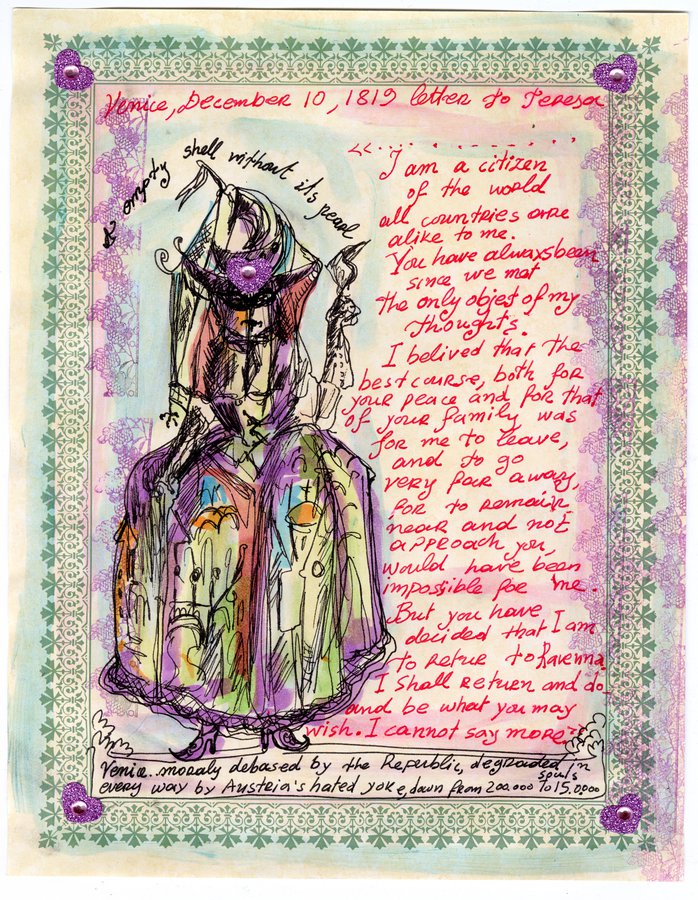 Venice, December 10, 1819 letter to Teresa
empty shell without its pearl
"........
I am a citizen
of the world
all countries are
alike to me.
You have always been
since we met
the only objet of my
thoughts.
I belived that the
best course, both for
your peace and for that
of your family was
for me to leave,
and to go
very far away,
for to remain
near and not
approach you,
would have been
impossible for me.
But you have
decided that I am
to retur to Ravenna
I shall return and do
and be what you may
wish. I cannot say more"
Venice.. moraly debased by the Republic, degraded in
every way by Austria's hated yoke, down from 200.000 to 15.0000
souls